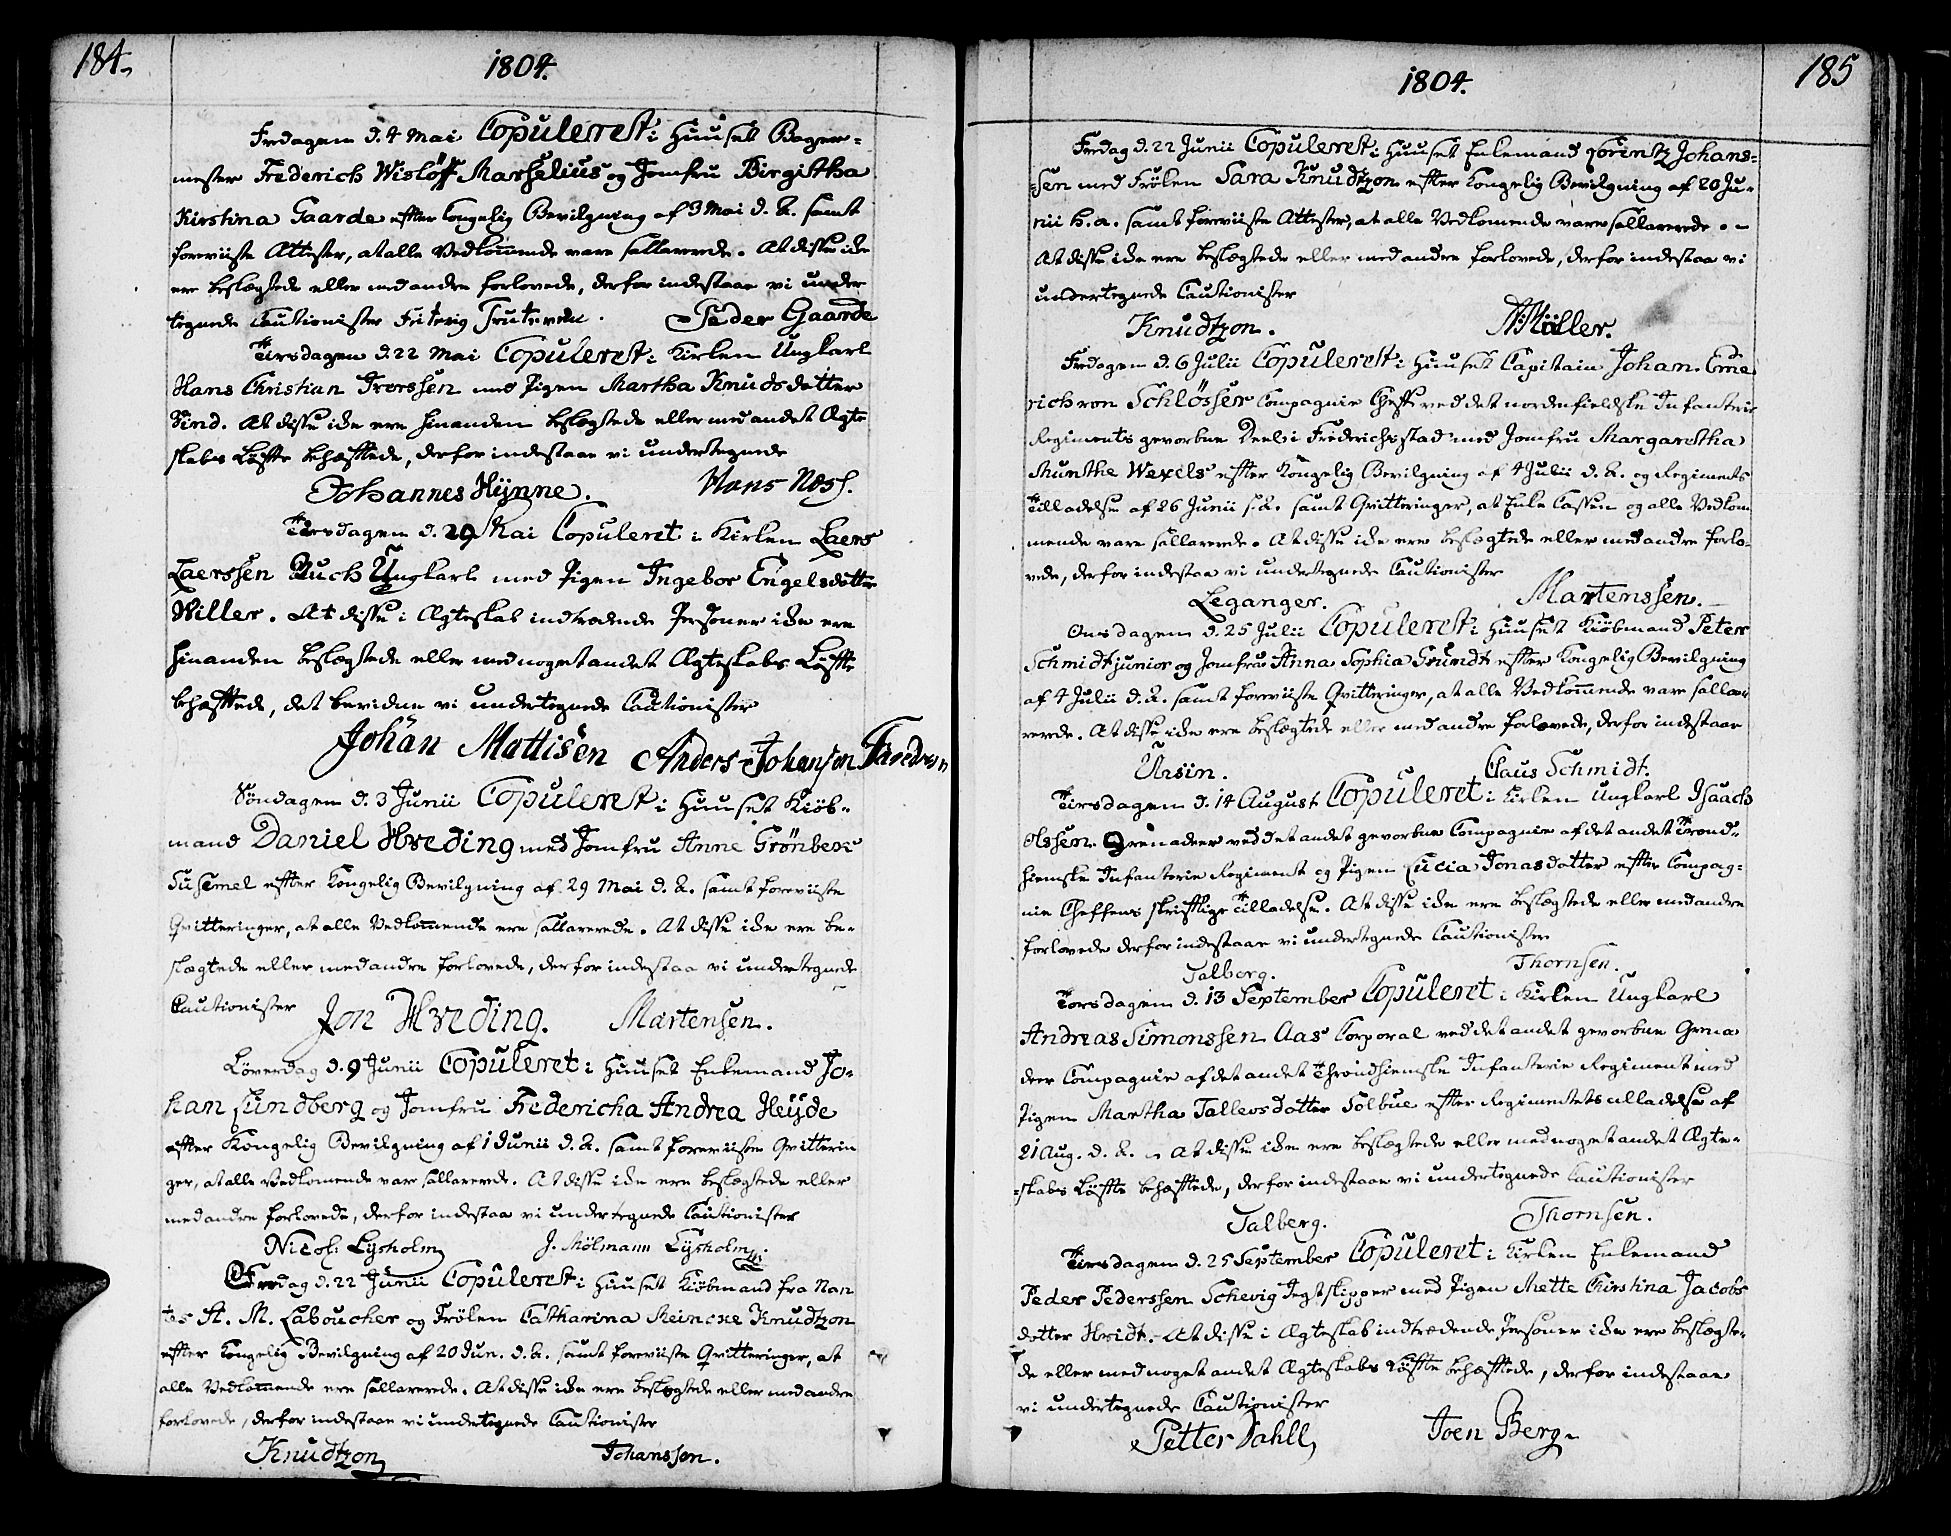 184.
1804.
Fredagen d. 4 Mai Copuleret i Huuset Bager-
mester Frederich Wisløff Marselius og Jomfru Birgitha
Kirstina Gaarde efter Kongelig Bevilgning af 3 Mai d. A. samt
foreviiste Attester, at alle Vedkommende vare sallarerede. At disse icke
ere beslægtede eller med andre forlovede, derfor indestaae vi under
tegnede Cautionister Peder Gaarde
Tirsdagen d. 22 Mai Copuleret i Kirken Ungkarl
Hans Christian Iversen med Pigen Martha Knudsdatter
Sind. At disse icke ere hinanden beslægtede eller med andet Ægte
skabs Løfte behæftede, derfor indestaae vi undertegnede
Johannes Hÿnne. Hans Næss.
Tirsdagen d. 29 Mai Copuleret i Kirken Laers
Laerssen Buch Ungkarl med Pigen Ingebor Engelsdotter
Willer. At disse i Ægteskab indtrædende Personer icke ere
hinanden beslægtede eller med noget andet Ægteskabs Løffte
behæfftede, det bevidne vi undertegnede Cautionister
Johan Mattisen Anders Johansen
Søndagen d. 3 Junii Copuleret i Huuset Kiøb-
mand Daniel Hveding med Jomfru Anne Grönbeck
Susemel effter Kongelig Bevilgning af 29 Mai d. A. samt foreviiste
Qvitteringer, at alle Vedkommende ere sallarerede. At disse icke ere be-
slægtede eller med andre forlovede, derfor indestaa vi undertegnede
Cautionister Jon Hveding. Martensen.
Løverdag d. 9 Junii Copuleret i Huuset Enkemand Jo-
han Sundberg og Jomfru Fredericha Andrea Heÿde
effter Kongelig Bevilgning af 1 Junii d. A. samt foreviiste Qvitterin
ger, at alle Vedkomende vare sallarerede. At disse icke ere beslægtede eller
med andre forlovede, derfor indestaa vi undertegnede Cautionister
Nicol. Lysholm J. Mölmann Lysholm
Fredag d. 22 Junii Copuleret i Huuset Kiøbmand fra Nan
tes A. M. Laboucher og Frølen Catharina Meincke Knudtzon
effter Kongelig Bevilgning af 20 Jun. d. A. samt foreviiste Qvitteringer, at
alle Vedkommende ere sallarerede. At disse icke ere beslægtede eller med andre
forlovede, derfor indestaae vi undertegnede Cautionister
Knudtzon Johanssen.
185
1804.
Fredag d. 22 Junii Copuleret i Huuset Enkemand Lorentz Johans-
sen med Frølen Sara Knudtzon effter Kongelig Bevilgning af 20 Ju-
nii h. a. samt foreviiste Attester, at alle Vedkomende vare sallarerede. -
At disse icke ere beslægtede eller med andre forlovede, derfor indestaa vi
undertegnede Cautionister
Knudtzon. Möller.
Fredagen d. 6 Julii Copuleret i Huuset Capitain Johan Eme
rich von Schlösser Compagnie Cheff ved det nordenfieldske Infanterie
Regiments gevorbne Deel i Frederichsstad med Jomfru Margaretha
Munthe Wexels effter Kongelig Bevilgning af 4 Julii d. A. og Regiments
Tilladelse af 26 Junii s. A. samt Qvitteringer, at Enke Cassen og alle Vedkom
mende vare sallarerede. At disse icke ere beslægtede eller med andre forlo-
vede, derfor indestaa vi undertegnede Cautionister
Leganger. Martenssen.
Onsdagen d. 25 Julii Copuleret i Huuset Kiøbmand Peter
Schmidt junior og Jomfru Anna Sophia Grundt effter Kongelig Bevilgning
af 4 Julii d. A. samt foreviiste Qvitteringer, at alle Vedkommende vare salla-
rerede. At disse icke ere beslægtede eller med andre forlovede, derfor indestaae
Ursin. Claus Schmidt.
Tirsdagen d. 14 August Copuleret i Kirken Ungkarl Isaach
Olssen Grenadeer ved det andet gevorbne Compagnie af det andet Trond-
hiemske Infanterie Regiment og Pigen Lucia Jonasdotter effter Compag-
nie Cheffens skrifftlige Tilladelse. At disse icke ere beslægtede eller med andre
forlovede derfor indestaae vi undertegnede Cautionister
Talberg. Thornsen.
Torsdagen d. 13 September Copuleret i Kirken Ungkarl
Andreas Simonssen Aas Corporal ved det andet gevorbne Grena
deer Compagnie af det andet Throndhiemske Infanterie Regiment med
Pigen Martha Tallevsdotter Solbue effter Regimentets tilladelse af
21 Aug. d. A. - At disse icke ere beslægtede eller med noget andet Ægte-
skabs Løffte behæfftede, derfor indestaae vi undertegnede Cautionister
Talberg. Thornsen.
Tirsdagen d. 25 September Copuleret i Kirken Enkemand
Peder Pederssen Schevig Jegtskipper med Pigen Mette Chirstina Jacobs
dotter Hvidt. At disse i Ægteskab indtrædende Personer icke ere beslægte-
de eller med noget andet Ægteskabs Løffte behæfftede, derfor indestaae
vi undertegnede Cautionister
Petter Dahll Joen Berg.